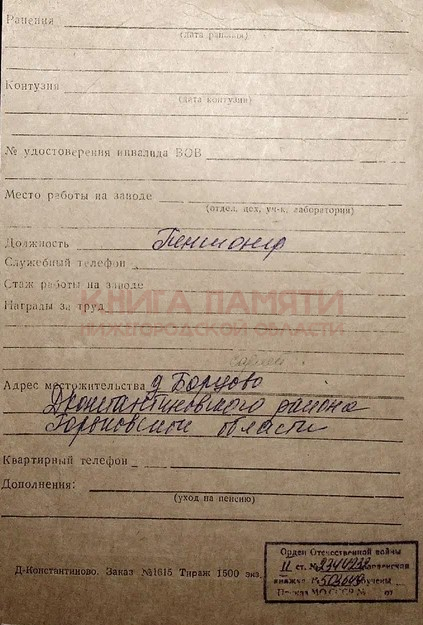 Ранения
(дата ранения)
Контузия
(дата контузии)
№ удостоверения инвалида ВОВ
Место работы на заводе
(отдел, цех, уч-к, лаборатория)
Должность Пенсионер
Служебный телефон
Стаж работы на заводе
Награды за труд
КНИГА ПАМЯТИ
НИЖЕГОРОДСКОЙ ОБЛАСТИ
Адрес местожительства д Борцово
Дконстантиновского района
Горьковской области
Квартирный телефон
Дополнения:
(уход на пенсию)
Орден Отечественной войны
II ст. №
Д-Константиново. Заказ №1615 Тираж 1500 экз.